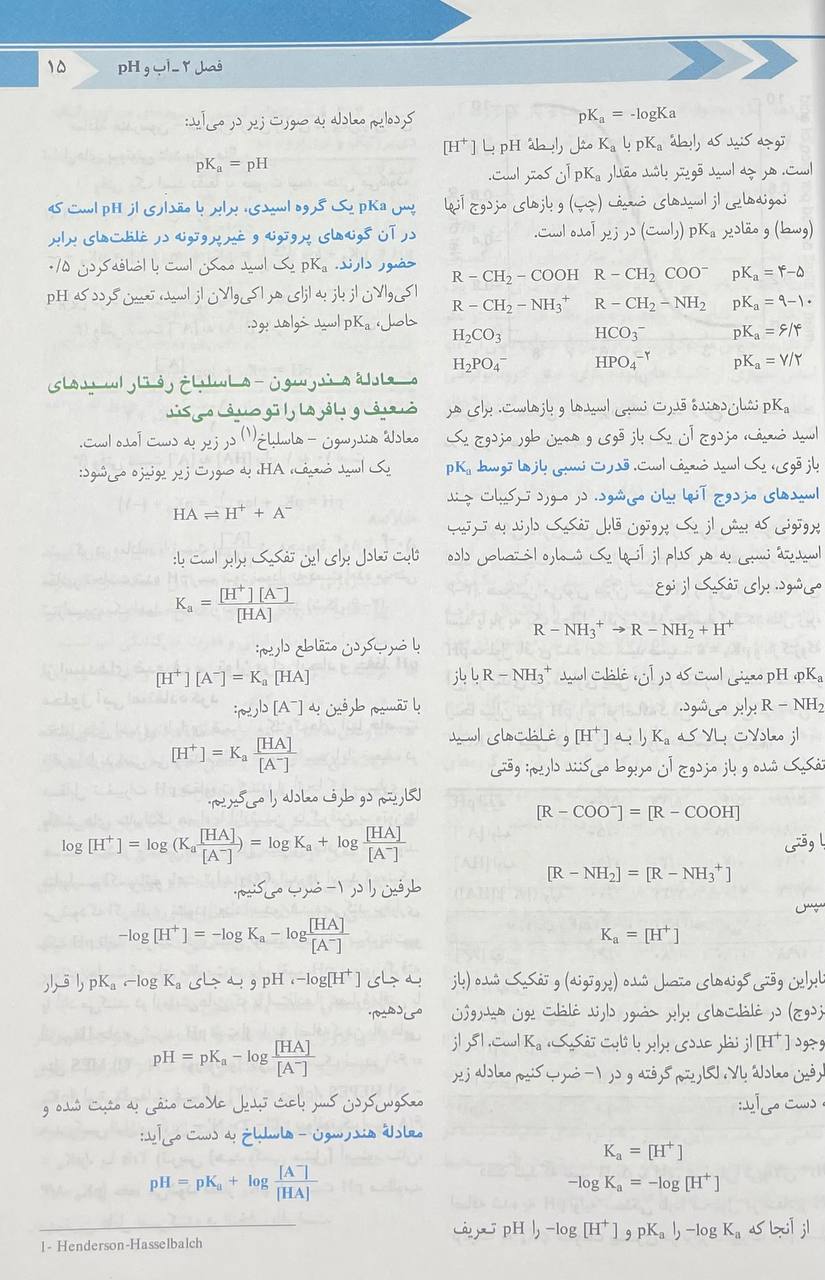 فصل ۲ ـ آب و pH
۱۵
pKa = -logKa
توجه کنید که رابطهٔ pKa با Ka مثل رابطهٔ pH بـا [H⁺]
است. هر چه اسید قویتر باشد مقدار pKa آن کمتر است.
نمونه‌هایی از اسیدهای ضعیف (چپ) و بازهای مزدوج آنها
(وسط) و مقادیر pKa (راست) در زیر آمده است.
R – CH₂ – COOH R – CH₂ COO⁻ pKa = ۴–۵
R – CH₂ – NH₃⁺ R – CH₂ – NH₂ pKa = ۹–۱۰
H₂CO₃ HCO₃⁻ pKa = ۶/۴
H₂PO₄⁻ HPO₄⁻² pKa = ۷/۲
pKa نشان‌دهندهٔ قدرت نسبی اسیدها و بازهاست. برای هر
اسید ضعیف، مزدوج آن یک باز قوی و همین طور مزدوج یک
باز قوی، یک اسید ضعیف است. قدرت نسبی بازها توسط pKa
اسیدهای مزدوج آنها بیان می‌شود. در مورد ترکیبات چند
پروتونی که بیش از یک پروتون قابل تفکیک دارند به ترتیب
اسیدیتهٔ نسبی به هر کدام از آنـها یک شمـاره اختصاص داده
می‌شود. برای تفکیک از نوع
R – NH₃⁺ → R – NH₂ + H⁺
pH ،pKa معینی است که در آن، غلظت اسید R – NH₃⁺ با باز
R – NH₂ برابر می‌شود.
از معادلات بـالا کـه Ka را بـه [H⁺] و غـلظت‌های اسـید
تفکیک شده و باز مزدوج آن مربوط می‌کنند داریم: وقتی
[R – COO⁻] = [R – COOH]
یا وقتی
[R – NH₂] = [R – NH₃⁺]
سپس
Ka = [H⁺]
نابراین وقتی گونه‌های متصل شده (پروتونه) و تفکیک شده (باز
زدوج) در غلظت‌های برابر حضور دارند غلظت یون هیدروژن
وجود [H⁺] از نظر عددی برابر با ثابت تفکیک، Ka است. اگر از
طرفین معادلهٔ بالا، لگاریتم گرفته و در ۱− ضرب کنیم معادله زیر
ه دست می‌آید:
Ka = [H⁺]
–log Ka = –log [H⁺]
از آنجا که –log Ka را pKa و –log [H⁺] را pH تـعریف
کرده‌ایم معادله به صورت زیر در می‌آید:
pKa = pH
پس pKa یک گروه اسیدی، برابر با مقداری از pH است که
در آن گونه‌های پروتونه و غیرپروتونه در غلظت‌های برابر
حضور دارند. pKa یک اسید ممکن است با اضافه‌کردن ۰/۵
اکی‌والان از باز به ازای هر اکی‌والان از اسید، تعیین گردد که pH
حاصل، pKa اسید خواهد بود.
مـعـادلهٔ هـنـدرسـون – هـاسلبـاخ رفـتـار اسـیـدهـای
ضـعیف و بـافرها را تو صیف می‌کند
معادلهٔ هندرسون – هاسلباخ(۱) در زیر به دست آمده است.
یک اسید ضعیف، HA، به صورت زیر یونیزه می‌شود:
HA ⇌ H⁺ + A⁻
ثابت تعادل برای این تفکیک برابر است با:
Ka = [H⁺] [A⁻] / [HA]
با ضرب‌کردن متقاطع داریم:
[H⁺] [A⁻] = Ka [HA]
با تقسیم طرفین به [A⁻] داریم:
[H⁺] = Ka [HA] / [A⁻]
لگاریتم دو طرف معادله را می‌گیریم.
log [H⁺] = log (Ka [HA] / [A⁻]) = log Ka + log [HA] / [A⁻]
طرفین را در ۱− ضرب می‌کنیم.
–log [H⁺] = –log Ka – log [HA] / [A⁻]
بـه جـای –log[H⁺]، pH و بـه جـای –log Ka، pKa را قـرار
می‌دهیم.
pH = pKa – log [HA] / [A⁻]
معکوس‌کردن کسر باعث تبدیل علامت منفی به مثبت شده و
معادلهٔ هندرسون – هاسلباخ به دست می‌آید:
pH = pKa + log [A⁻] / [HA]
1- Henderson-Hasselbalch